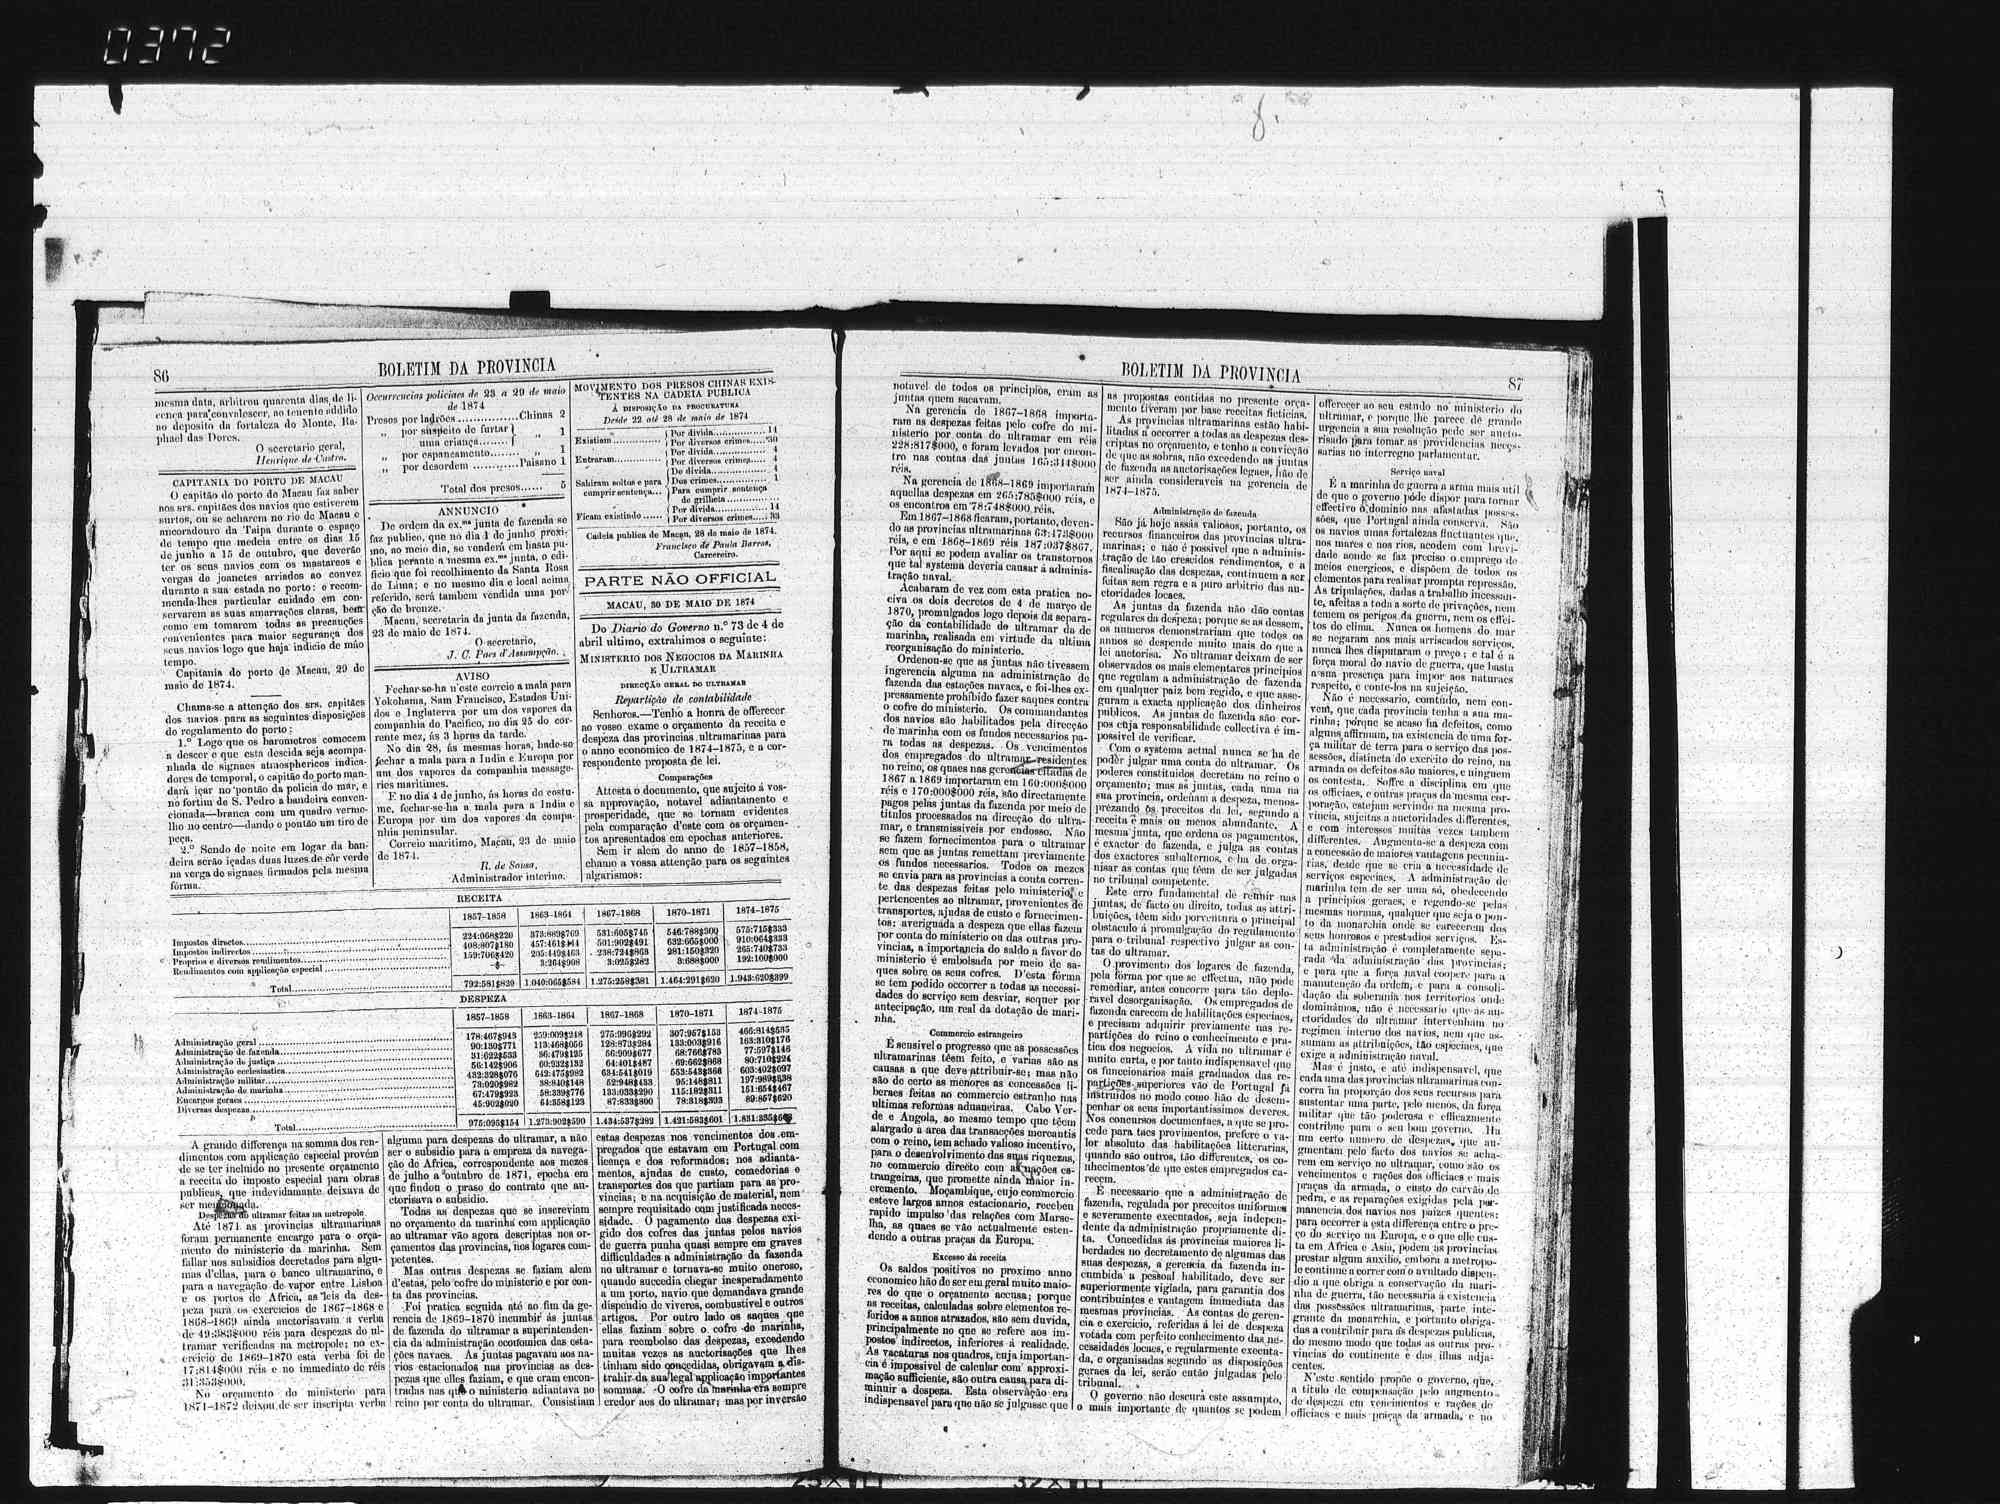 0372
86
BOLETIM DA PROVINCIA
mesma data, arbitrou quarenta dias de li-
cença para convalescer, ao tenente addido
no deposito da fortaleza do Monte, Ra-
phael das Dores.
O secretario geral,
Henrique de Castro.
CAPITANIA DO PORTO DE MACAU
O capitão do porto de Macau faz saber
aos srs. capitães dos navios que estiverem
surtos, ou se acharem no rio de Macau e
ancoradouro da Taipa durante o espaço
de tempo que medeia entre os dias 15
de junho a 15 de outubro, que deverão
ter os seus navios com os mastareos e
vergas de joanetes arriados ao convez
durante a sua estada no porto: e recom-
menda-lhes particular cuidado em con-
servarem as suas amarrações claras, bem
como em tomarem todas as precauções
convenientes para maior segurança dos
seus navios logo que haja indicio de mão
tempo.
Capitania do porto de Macau, 29 de
maio de 1874.
Chama-se a attenção dos srs. capitães
dos navios para as seguintes disposições
do regulamento do porto:
1.º Logo que os barometros comecem
a descer e que esta descida seja acompa-
nhada de signaes atmosphericos indica-
dores de temporal, o capitão do porto man-
dará içar no pontão da policia do mar, e
no fortim de S. Pedro a bandeira conven-
cionada—branca com um quadro verme-
lho no centro—dando o pontão um tiro de
peça.
2.º Sendo de noite em logar da ban-
deira serão içadas duas luzes de côr verde
na verga de signaes firmados pela mesma
fórma.
Occurrencias policiaes de 23 a 29 de maio
de 1874
Presos por ladrões............Chinas 2
„ por suspeito de furtar
uma criança........ „ 1
„ por espancamento....... „ 1
„ por desordem ............Paisano 1
Total dos presos...... 5
ANNUNCIO
De ordem da ex.ma junta de fazenda se
faz publico, que no dia 1 de junho proxi-
mo, ao meio dia, se venderá em hasta pu-
blica perante a mesma ex.ma junta, o edi-
ficio que foi recolhimento da Santa Rosa
de Lima; e no mesmo dia e local acima
referido, será tambem vendida uma por-
ção de bronze.
Macau, secretaria da junta da fazenda,
23 de maio de 1874.
O secretario,
J. C. Paes d'Assumpção.
AVISO
Fechar-se-ha n'este correio a mala para
Yokohama, Sam Francisco, Estados Uni-
dos e Inglaterra por um dos vapores da
companhia do Pacifico, no dia 25 do cor-
rente mez, ás 3 horas da tarde.
No dia 28, ás mesmas horas, hade-se
fechar a mala para a India e Europa por
um dos vapores da companhia message-
ries maritimes.
E no dia 4 de junho, ás horas do costu-
me, fechar-se-ha a mala para a India e
Europa por um dos vapores da compa-
nhia peninsular.
Correio maritimo, Macau, 23 de maio
de 1874.
R. de Sousa,
Administrador interino.
MOVIMENTO DOS PRESOS CHINAS EXIS-
TENTES NA CADEIA PUBLICA
Á DISPOSIÇÃO DA PROCURATURA
Desde 22 até 28 de maio de 1874
Existiam............ Por divida............ 14
Por diversos crimes..... 30
Entraram............ Por divida............ 4
Por diversos crimes..... 4
Sahiram soltos e para De divida............ 4
cumprir sentença... Dos crimes............ 1
Para cumprir sentença
de grilheta............
Ficam existindo ...... Por divida............ 14
Por diversos crimes.... 33
Cadeia publica de Macau, 28 de maio de 1874.
Francisco de Paula Barros,
Carcereiro.
PARTE NÃO OFFICIAL
MACAU, 30 DE MAIO DE 1874
Do Diario do Governo n.º 73 de 4 de
abril ultimo, extrahimos o seguinte:
MINISTERIO DOS NEGOCIOS DA MARINHA
E ULTRAMAR
DIRECÇÃO GERAL DO ULTRAMAR
Repartição de contabilidade
Senhores.—Tenho a honra de offerecer
ao vosso exame o orçamento da receita e
despeza das provincias ultramarinas para
o anno economico de 1874-1875, e a cor-
respondente proposta de lei.
Comparações
Attesta o documento, que sujeito á vos-
sa approvação, notavel adiantamento e
prosperidade, que se tornam evidentes
pela comparação d'este com os orçamen-
tos apresentados em epochas anteriores.
Sem ir alem do anno de 1857-1858,
chamo a vossa attenção para os seguintes
algarismos:
RECEITA
1857-1858 1863-1864 1867-1868 1870-1871 1874-1875
Impostos directos............ 224:068$220 373:889$769 531:605$745 546:788$300 575:715$333
Impostos indirectos............ 408:807$180 457:461$444 501:902$491 632:665$000 910:064$333
Proprios e diversos rendimentos............ 159:706$420 205:449$463 238:724$863 281:150$320 265:740$733
Rendimentos com applicação especial............ -$- 3:264$908 3:025$282 3:688$000 192:100$000
Total............ 792:581$820 1.040:065$584 1.275:258$381 1.464:291$620 1.943:620$399
DESPEZA
1857-1858 1863-1864 1867-1868 1870-1871 1874-1875
Administração geral............ 178:467$943 259:009$248 275:996$292 307:957$153 466:814$535
Administração de fazenda............ 90:130$771 113:468$056 128:873$284 133:003$916 163:310$176
Administração de justiça............ 31:622$533 36:479$125 56:909$677 68:766$783 77:597$146
Administração ecclesiastica............ 56:142$906 60:932$132 64:401$487 69:662$868 80:710$224
Administração militar............ 432:328$076 642:475$982 634:541$019 553:543$366 603:402$097
Administração de marinha............ 73:020$982 38:840$148 52:948$433 95:148$811 197:989$838
Encargos geraes............ 67:479$923 58:339$776 133:033$290 115:182$311 151:654$467
Diversas despezas............ 45:902$020 64:358$123 87:833$800 78:318$393 89:857$620
Total............ 975:095$154 1.273:902$590 1.434:537$282 1.421:583$601 1.831:335$603
A grande differença na somma dos ren-
dimentos com applicação especial provém
de se ter incluido no presente orçamento
a receita do imposto especial para obras
publicas, que indevidamente deixava de
ser mencionada.
Despezas do ultramar feitas na metropole
Até 1871 as provincias ultramarinas
foram permanente encargo para o orça-
mento do ministerio da marinha. Sem
fallar nos subsidios decretados para algu-
mas d'ellas, para o banco ultramarino, e
para a navegação de vapor entre Lisboa
e os portos de Africa, as leis da des-
peza para os exercicios de 1867-1868 e
1868-1869 ainda auctorisavam a verba
de 49:383$000 réis para despezas do ul-
tramar verificadas na metropole; no ex-
ercicio de 1869-1870 esta verba foi de
17:814$000 réis e no immediato de réis
31:353$000.
No orçamento do ministerio para
1871-1872 deixou de ser inscripta verba
alguma para despezas do ultramar, a não
ser o subsidio para a empreza da navega-
ção de Africa, correspondente aos mezes
de julho a outubro de 1871, epocha em
que findou o praso do contrato que au-
ctorisava o subsidio.
Todas as despezas que se inscreviam
no orçamento da marinha com applicação
ao ultramar vão agora descriptas nos or-
çamentos das provincias, nos logares com-
petentes.
Mas outras despezas se faziam alem
d'estas, pelo cofre do ministerio e por con-
ta das provincias.
Foi pratica seguida até ao fim da ge-
rencia de 1869-1870 incumbir ás juntas
de fazenda do ultramar a superintenden-
cia da administração economica das esta-
ções navaes. As juntas pagavam aos na-
vios estacionados nas provincias as des-
pezas que elles faziam, e que eram encon-
tradas nas que o ministerio adiantava no
reino por conta do ultramar. Consistiam
estas despezas nos vencimentos dos em-
pregados que estavam em Portugal com
licença e dos reformados; nos adianta-
mentos, ajudas de custo, comedorias e
transportes dos que partiam para as pro-
vincias; e na acquisição de material, nem
sempre requisitado com justificada neces-
sidade. O pagamento das despezas exi-
gido dos cofres das juntas pelos navios
de guerra punha quasi sempre em graves
difficuldades a administração da fazenda
no ultramar e tornava-se muito oneroso,
quando succedia chegar inesperadamente
a um porto, navio que demandava grande
dispendio de viveres, combustivel e outros
artigos. Por outro lado os saques que
ellas faziam sobre o cofre de marinha,
para reembolso das despezas, excedendo
muitas vezes as auctorisações que lhes
tinham sido concedidas, obrigavam a dis-
trahir da sua legal applicação importantes
sommas. O cofre da marinha era sempre
credor aos do ultramar; mas por inversão
BOLETIM DA PROVINCIA
87
notavel de todos os principios, eram as
juntas quem sacavam.
Na gerencia de 1867-1868 importa-
ram as despezas feitas pelo cofre do mi-
nisterio por conta do ultramar em réis
228:817$000, e foram levados por encon-
tro nas contas das juntas 165:344$000
réis.
Na gerencia de 1868-1869 importaram
aquellas despezas em 265:785$000 réis, e
os encontros em 78:748$000 réis.
Em 1867-1868 ficaram, portanto, deven-
do as provincias ultramarinas 63:473$000
réis, e em 1868-1869 réis 187:037$867.
Por aqui se podem avaliar os transtornos
que tal systema deveria causar á adminis-
tração naval.
Acabaram de vez com esta pratica no-
civa os dois decretos de 4 de março de
1870, promulgados logo depois da separa-
ção da contabilidade do ultramar da de
marinha, realisada em virtude da ultima
reorganisação do ministerio.
Ordenou-se que as juntas não tivessem
ingerencia alguma na administração de
fazenda das estações navaes, e foi-lhes ex-
pressamente prohibido fazer saques contra
o cofre do ministerio. Os commandantes
dos navios são habilitados pela direcção
de marinha com os fundos necessarios pa-
ra todas as despezas. Os vencimentos
dos empregados do ultramar residentes
no reino, os quaes nas gerencias citadas de
1867 a 1869 importaram em 160:000$000
réis e 170:000$000 réis, são directamente
pagos pelas juntas da fazenda por meio de
titulos processados na direcção do ultra-
mar, e transmissiveis por endosso. Não
se fazem fornecimentos para o ultramar
sem que as juntas remettam previamente
os fundos necessarios. Todos os mezes
se envia para as provincias a conta corren-
te das despezas feitas pelo ministerio, e
pertencentes ao ultramar, provenientes de
transportes, ajudas de custo e fornecimen-
tos: averiguada a despeza que ellas fazem
por conta do ministerio ou das outras pro-
vincias, a importancia do saldo a favor do
ministerio é embolsada por meio de sa-
ques sobre os seus cofres. D'esta fórma
se tem podido occorrer a todas as necessi-
dades do serviço sem desviar, sequer por
antecipação, um real da dotação de mari-
nha.
Commercio estrangeiro
É sensivel o progresso que as possessões
ultramarinas têem feito, e varias são as
causas a que deve attribuir-se; mas não
são de certo as menores as concessões li-
beraes feitas ao commercio estranho nas
ultimas reformas aduaneiras. Cabo Ver-
de e Angola, ao mesmo tempo que têem
alargado a area das transacções mercantis
com o reino, tem achado valioso incentivo,
para o desenvolvimento das suas riquezas,
no commercio directo com as nações es-
trangeiras, que promette ainda maior in-
cremento. Moçambique, cujo commercio
esteve largos annos estacionario, recebeu
rapido impulso das relações com Marse-
lha, as quaes se vão actualmente esten-
dendo a outras praças da Europa.
Excesso da receita
Os saldos positivos no proximo anno
economico hão de ser em geral muito maio-
res do que o orçamento accusa; porque
as receitas, calculadas sobre elementos re-
feridos a annos atrazados, são sem duvida,
principalmente no que se refere aos im-
postos indirectos, inferiores á realidade.
As vacaturas nos quadros, cuja importan-
cia é impossivel de calcular com approxi-
mação sufficiente, são outra causa para di-
minuir a despeza. Esta observação era
indispensavel para que não se julgasse que
as propostas contidas no presente orça-
mento tiveram por base receitas ficticias.
As provincias ultramarinas estão habi-
litadas a occorrer a todas as despezas des-
criptas no orçamento, e tenho a convicção
de que as sobras, não excedendo as juntas
de fazenda as auctorisações legaes, hão de
ser ainda consideraveis na gerencia de
1874-1875.
Administração de fazenda
São já hoje assás valiosos, portanto, os
recursos financeiros das provincias ultra-
marinas; e não é possivel que a adminis-
tração de tão crescidos rendimentos, e a
fiscalisação das despezas, continuem a ser
feitas sem regra e a puro arbitrio das au-
ctoridades locaes.
As juntas da fazenda não dão contas
regulares da despeza; porque se as dessem,
os numeros demonstrariam que todos os
annos se despende muito mais do que a
lei auctorisa. No ultramar deixam de ser
observados os mais elementares principios
que regulam a administração de fazenda
em qualquer paiz bem regido, e que asse-
guram a exacta applicação dos dinheiros
publicos. As juntas de fazenda são cor-
pos cuja responsabilidade collectiva é im-
possivel de verificar.
Com o systema actual nunca se ha de
podêr julgar uma conta do ultramar. Os
poderes constituidos decretam no reino o
orçamento; mas as juntas, cada uma na
sua provincia, ordenam a despeza, menos-
prezando os preceitos da lei, segundo a
receita é mais ou menos abundante. A
mesma junta, que ordena os pagamentos,
é exactor de fazenda, e julga as contas
dos exactores subalternos, e ha de orga-
nisar as contas que têem de ser julgadas
no tribunal competente.
Este erro fundamental de reunir nas
juntas, de facto ou direito, todas as attri-
buições, têem sido porventura o principal
obstaculo á promulgação do regulamento
para o tribunal respectivo julgar as con-
tas do ultramar.
O provimento dos logares de fazenda,
pela fórma por que se effectua, não póde
remediar, antes concorre para tão deplo-
ravel desorganisação. Os empregados de
fazenda carecem de habilitações especiaes,
e precisam adquirir previamente nas re-
partições do reino o conhecimento e pra-
tica dos negocios. A vida no ultramar é
muito curta, e por tanto indispensavel que
os funccionarios mais graduados das re-
partições superiores vão de Portugal já
instruidos no modo como hão de desem-
penhar os seus importantissimos deveres.
Nos concursos documentaes, a que se pro-
cede para taes provimentos, prefere o va-
lor absoluto das habilitações litterarias,
quando são outros, tão differentes, os co-
nhecimentos de que estes empregados ca-
recem.
É necessario que a administração de
fazenda, regulada por preceitos uniformes
e severamente executados, seja indepen-
dente da administração propriamente di-
ta. Concedidas ás provincias maiores li-
berdades no decretamento de algumas das
suas despezas, a gerencia da fazenda in-
cumbida a pessoal habilitado, deve ser
superiormente vigiada, para garantia dos
contribuintes e vantagem immediata das
mesmas provincias. As contas de geren-
cia e exercicio, referidas á lei de despeza
votada com perfeito conhecimento das ne-
cessidades locaes, e regularmente executa-
da, e organisadas segundo as disposições
geraes da lei, serão então julgadas pelo
tribunal.
O governo não descura este assumpto,
o mais importante de quantos se podem
offerecer ao seu estudo no ministerio do
ultramar, e porque lhe parece de grande
urgencia a sua resolução pede ser aucto-
risado para tomar as providencias neces-
sarias no interregno parlamentar.
Serviço naval
É a marinha de guerra a arma mais util
de que o governo póde dispor para tornar
effectivo o dominio nas afastadas posses-
sões, que Portugal ainda conserva. São
os navios umas fortalezas fluctuantes que,
nos mares e nos rios, acodem com brevi-
dade aonde se faz preciso o emprego de
meios energicos, e dispõem de todos os
elementos para realisar prompta repressão.
As tripulações, dadas a trabalho incessan-
te, afeitas a toda a sorte de privações, nem
temem os perigos da guerra, nem os effei-
tos do clima. Nunca os homens do mar
se negaram aos mais arriscados serviços,
nunca lhes disputaram o preço; e tal é a
força moral do navio de guerra, que basta
a sua presença para impor aos naturaes
respeito, e conte-los na sujeição.
Não é necessario, comtudo, nem con-
vem, que cada provincia tenha a sua ma-
rinha; porque se acaso ha defeitos, como
alguns affirmam, na existencia de uma for-
ça militar de terra para o serviço das pos-
sessões, distincta do exercito do reino, na
armada os defeitos são maiores, e ninguem
os contesta. Soffre a disciplina em que
os officiaes, e outras praças da mesma cor-
poração, estejam servindo na mesma pro-
vincia, sujeitas a auctoridades differentes,
e com interesses muitas vezes tambem
differentes. Augmenta-se a despeza com
a concessão de maiores vantagens pecunia-
rias, desde que se cria a necessidade de
serviços especiaes. A administração de
marinha tem de ser uma só, obedecendo
a principios geraes, e regendo-se pelas
mesmas normas, qualquer que seja o pon-
to da monarchia onde se carecerem dos
seus honrosos e prestadios serviços. Es-
ta administração é completamente sepa-
rada da administração das provincias;
e para que a força naval coopere para a
manutenção da ordem, e para a consoli-
dação da soberania nos territorios onde
dominâmos, não é necessario que as au-
ctoridades do ultramar intervenham no
regimen interno dos navios, nem que as-
sumam as attribuições, tão especiaes, que
exige a administração naval.
Mas é justo, e até indispensavel, que
cada uma das provincias ultramarinas con-
corra na proporção dos seus recursos para
sustentar uma parte, pelo menos, da força
militar que tão poderosa e efficazmente
contribue para o seu bom governo. Ha
um certo numero de despezas, que au-
gmentam pelo facto dos navios se acha-
rem em serviço no ultramar, como são os
vencimentos e rações dos officiaes e mais
praças da armada, o custo do carvão de
pedra, e as reparações exigidas pela per-
manencia dos navios nos paizes quentes:
para occorrer a esta differença entre o pre-
ço do serviço na Europa, e o que elle cus-
ta em Africa e Asia, podem as provincias
prestar algum auxilio, embora a metropo-
le continue a correr com o avultado dispen-
dio a que obriga a conservação da mari-
nha de guerra, tão necessaria á existencia
das possessões ultramarinas, parte inte-
grante da monarchia, e portanto obriga-
das a contribuir para ás despezas publicas,
do mesmo modo que todas as outras pro-
vincias do continente e das ilhas adja-
centes.
N'este sentido propõe o governo, que,
a titulo de compensação pelo augmento
de despeza em vencimentos e rações de
officiaes e mais praças da armada, e no